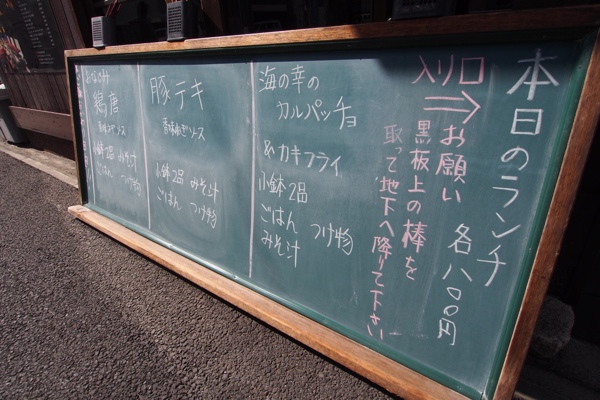 本日のランチ
各八〇〇円
入り口
お願い
黒板上の棒を
取って地下へ降りて下さい
海の幸の
カルパッチョ
&カキフライ
小鉢2品
ごはん つけ物
みそ汁
豚テキ
香味ねぎソース
小鉢2品 みそ汁
ごはん つけ物
鶏唐
小鉢2品 みそ汁
ごはん つけ物